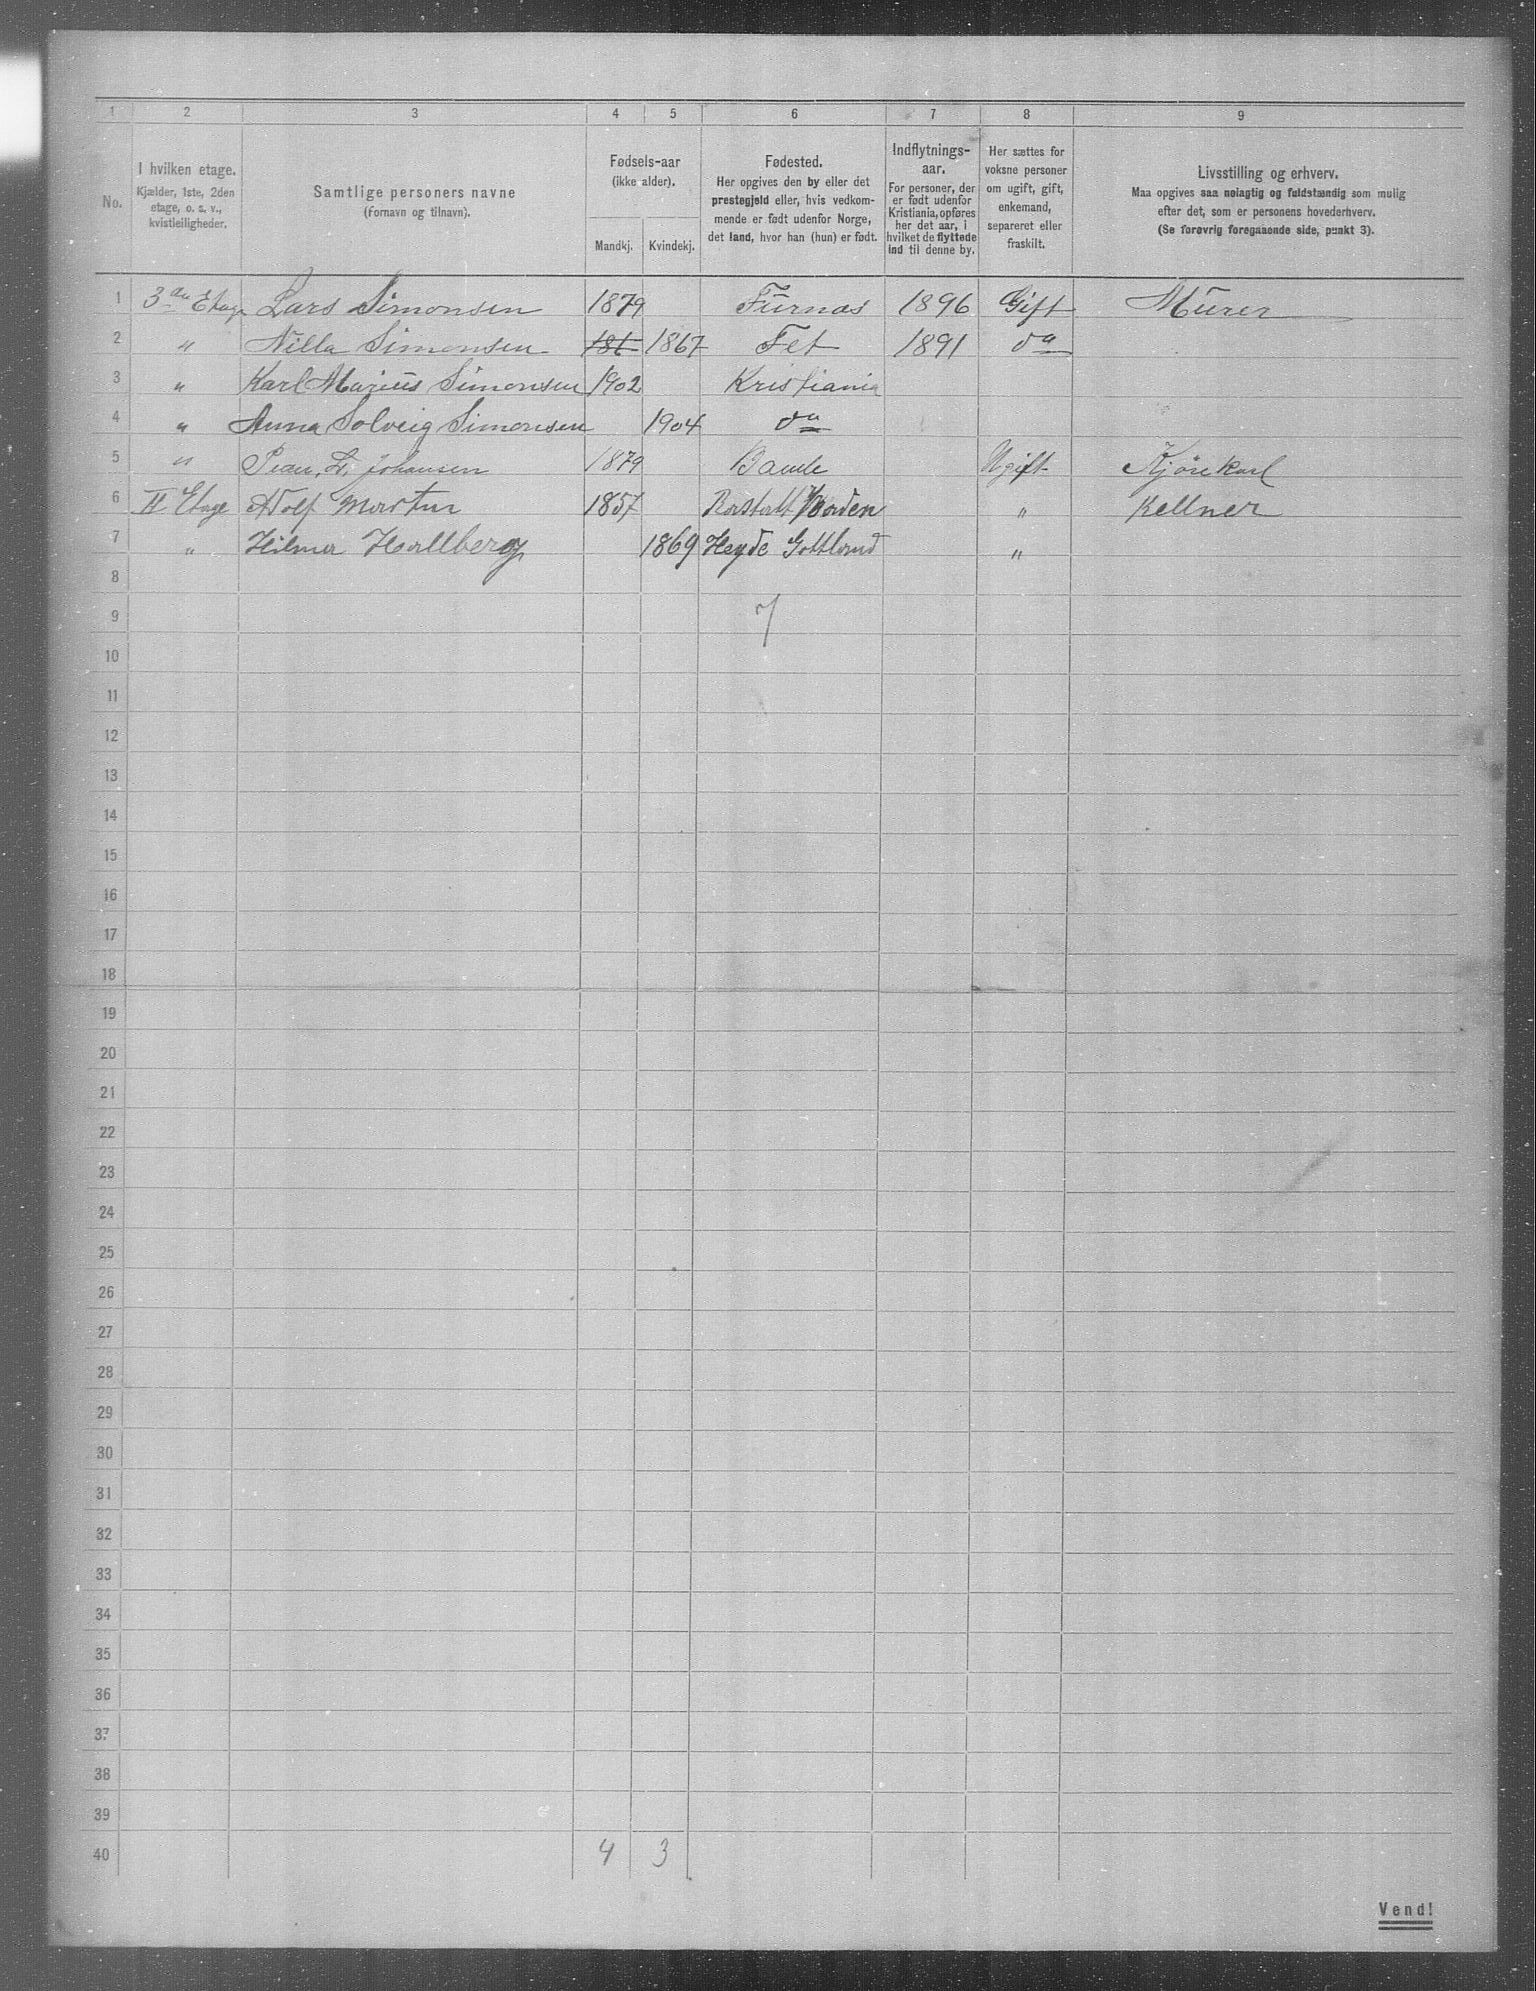 1 2 3 4 5 6 7 8 9
No.
I hvilken etage.
Kjælder, 1ste, 2den
etage, o. s. v.,
kvistleiligheder.
Samtlige personers navne
(fornavn og tilnavn).
Fødsels-aar
(ikke alder).
Mandkj. Kvindekj.
Fødested.
Her opgives den by eller det
prestegjeld eller, hvis vedkom-
mende er født udenfor Norge,
det land, hvor han (hun) er født.
Indflytnings-
aar.
For personer, der
er født udenfor
Kristiania, opføres
her det aar, i
hvilket de flyttede
ind til denne by.
Her sættes for
voksne personer
om ugift, gift,
enkemand,
separeret eller
fraskilt.
Livsstilling og erhverv.
Maa opgives saa nøiagtig og fuldstændig som mulig
efter det, som er personens hovederhverv.
(Se forøvrig foregaaende side, punkt 3).
1 3die Etage Lars Simonsen 1879 Furnæs 1896 Gift Murer
2 " Nilla Simonsen 186 1867 Fet 1891 do
3 " Karl Marius Simonsen 1902 Kristiania
4 " Anna Solveig Simonsen 1904 do
5 " Johansen 1879 Bamle Ugift Kjørekarl
6 II Etage Adolf Martin 1857 " Kellner
7 " Hilma Hallberg 1869 Heyde Gottland "
8
9 7
10
11
12
13
14
15
16
17
18
19
20
21
22
23
24
25
26
27
28
29
30
31
32
33
34
35
36
37
38
39
40 4 3
Vend!